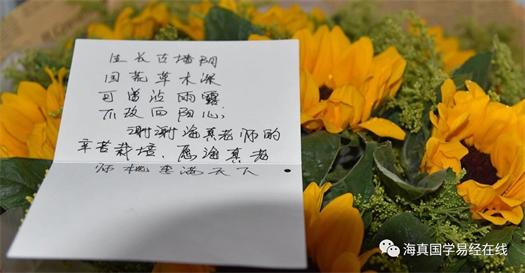 生长古墙阴
园荒草木深
可曾沾雨露
不改向阳心;
谢谢海真老师的
辛苦栽培、愿海真老
师桃李满天下
海真国学易经在线